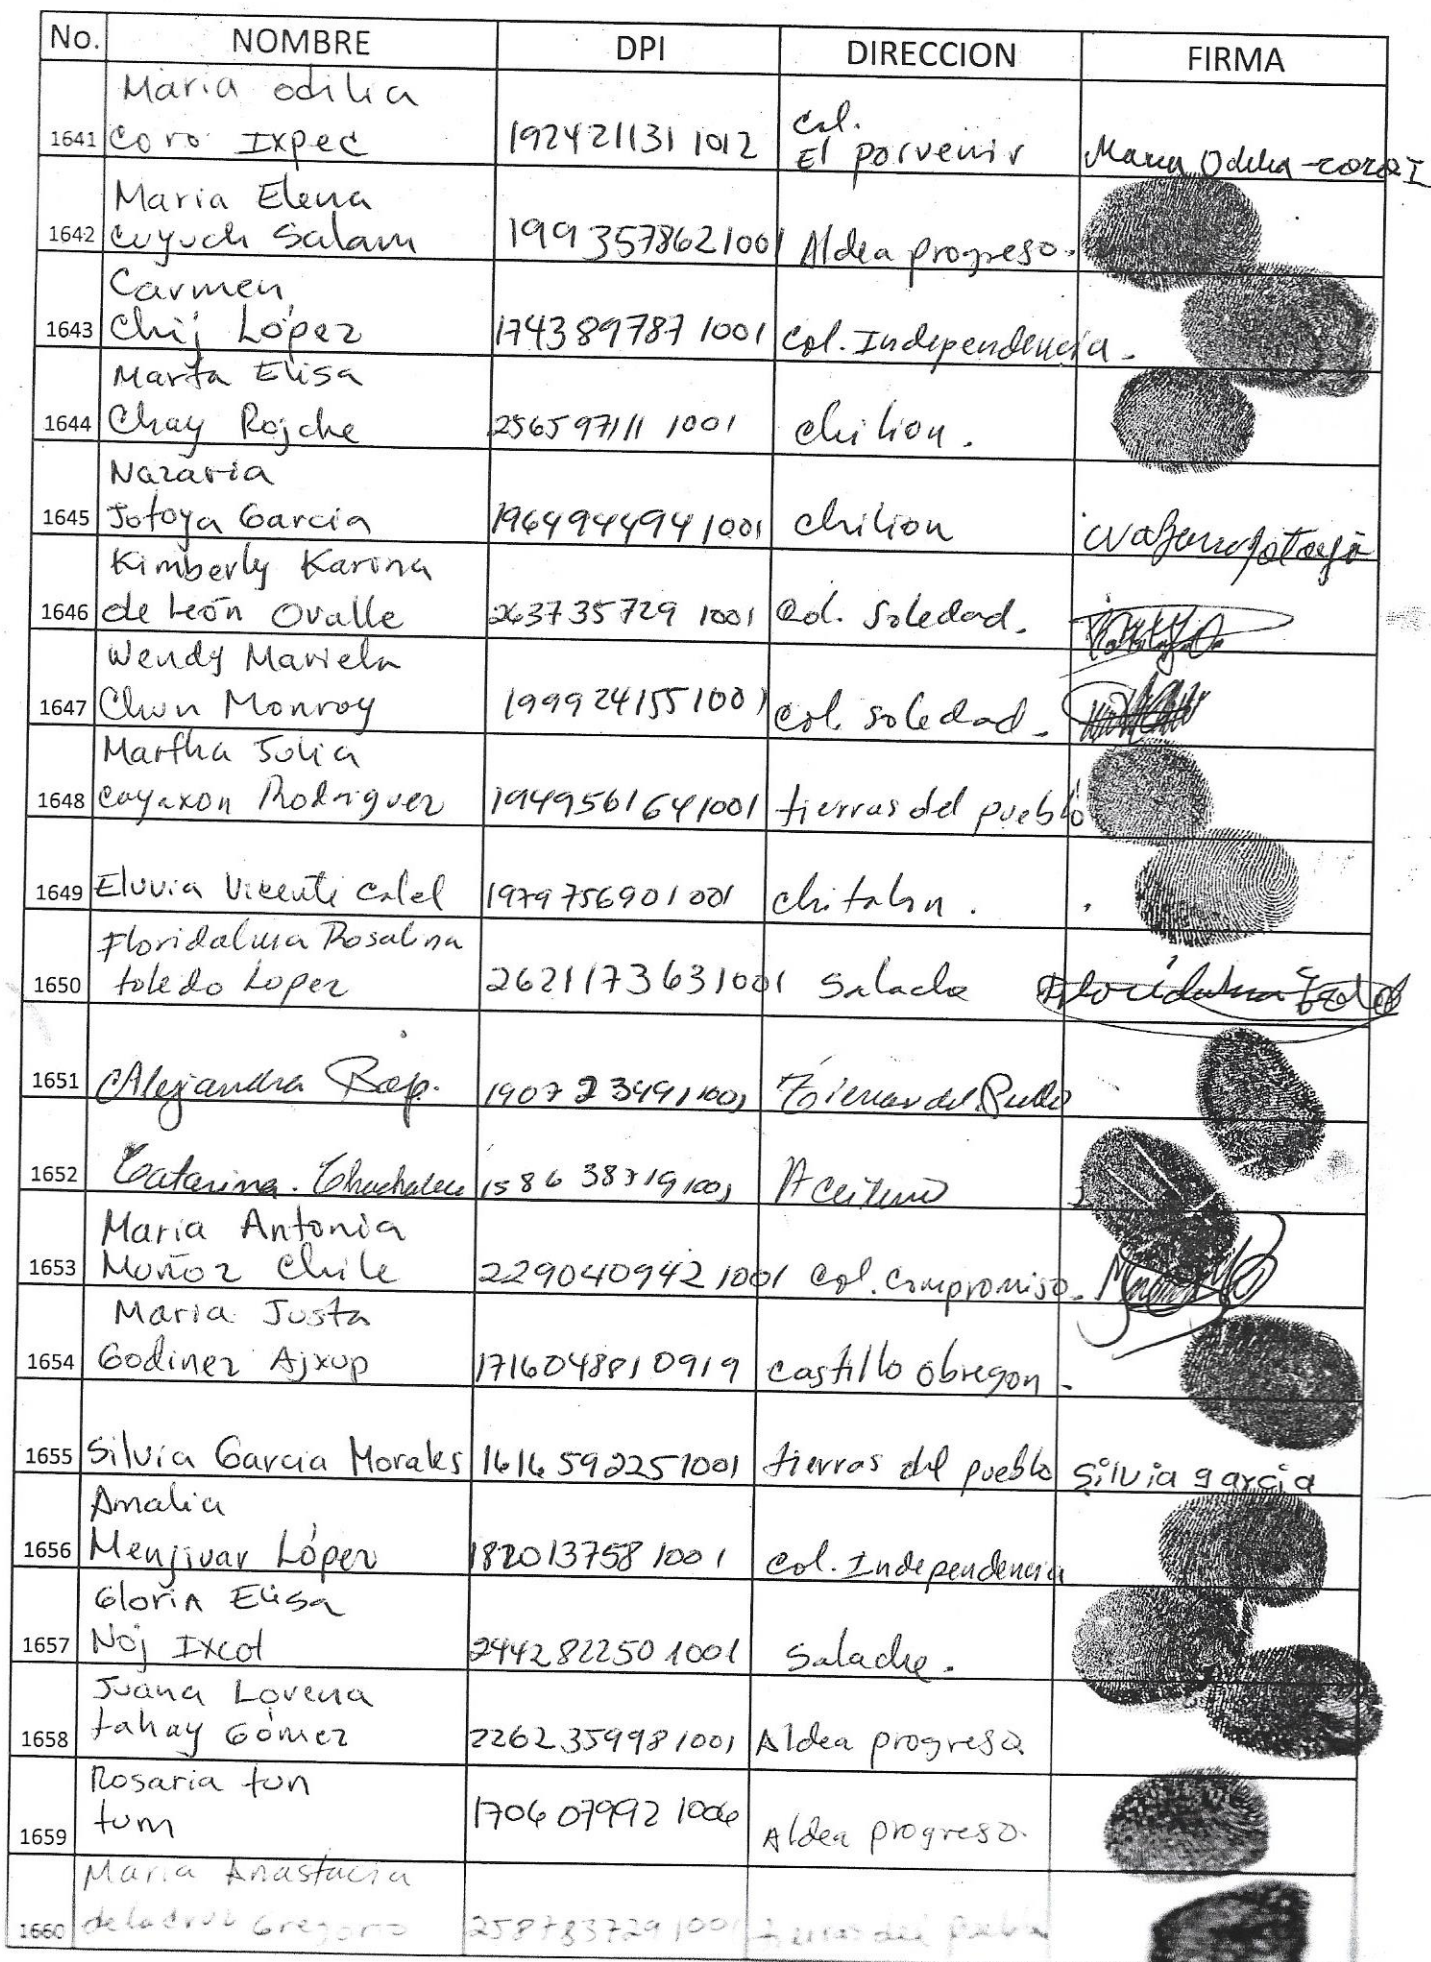 No. NOMBRE DPI DIRECCION FIRMA
Maria Odilia
1641 Coro Ixpec 192421131 1012 Col. El porvenir Maria Odilia coro I
Maria Elena
1642 Cuyuch Salam 1993578621001 Aldea progreso.
Carmen
1643 Chij López 174389787 1001 Col. Independencia.
Marta Elisa
1644 Chay Rojche 256597111 1001 Chilion.
Nazaria
1645 Jotoya Garcia 196494494 1001 Chilion
Kimberly Karina
1646 de León Ovalle 263735729 1001 Col. Soledad.
Wendy Mariela
1647 Chun Monroy 199924155 1001 Col. Soledad.
Martha Julia
1648 Cayaxon Rodriguez 1949561641001 tierras del pueblo
1649 Eluvia Vicente Calel 1979756901001 Chitalon.
Floridalma Rosalina
1650 toledo Lopez 2621173631001 Salache Floridalma
1651 Alejandra 1907234991001 Tierras del Pueblo
1652 Catarina
1653 Maria Antonia
Muñoz Chile 229040942 1001 Col. Compromiso.
Maria Justa
1654 Godinez Ajxup 171604881 0919 Castillo Obregon.
1655 Silvia Garcia Morales 1616592251001 tierras del pueblo Silvia garcia
Amalia
1656 Menjivar López 182013758 1001 Col. Independencia
Gloria Elisa
1657 Noj Ixcol 244282250 1001 Salache.
Juana Lorena
1658 tahay Gómez 2262359981001 Aldea progreso
Rosaria tun
1659 tum 170607992 1006 Aldea progreso.
Maria Anastacia
1660 de la cruz Gregorio 258783729 1001 tierras del Pueblo